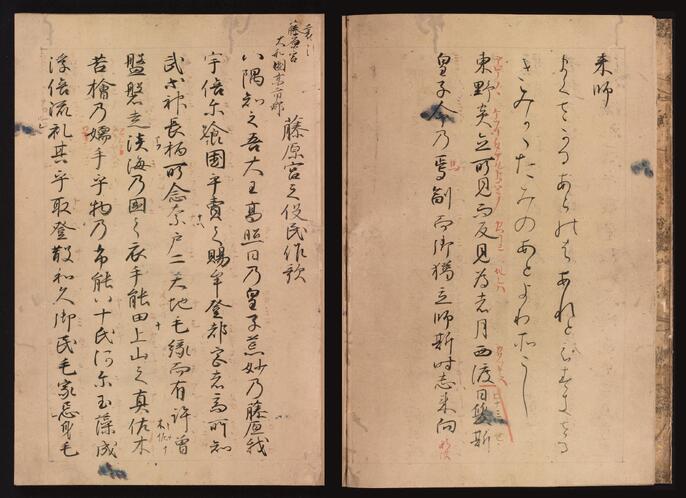 来師
まくさかるあらのはあれとはすきさる
きみかゝたみのあとよりそこし
東野炎立所見而反見為者月西渡日雙斯
皇子命乃焉副而御獦立師斯時志来向
馬
藤原宮
大和國高市郡
藤原宮之役民作歌
八隅知之吾大王高照日乃皇子荒妙乃藤原我
宇倍尓飡國乎賣之賜牟登都宮者高所知
武等神長柄所念奈戸二天地毛縁而有許曽
盤磐走淡海乃國之衣手能田上山之真佐木
苦檜乃嬬手乎物乃布能八十氏河尓玉藻成
浮倍流礼其乎取登散和久御民毛家忘身毛